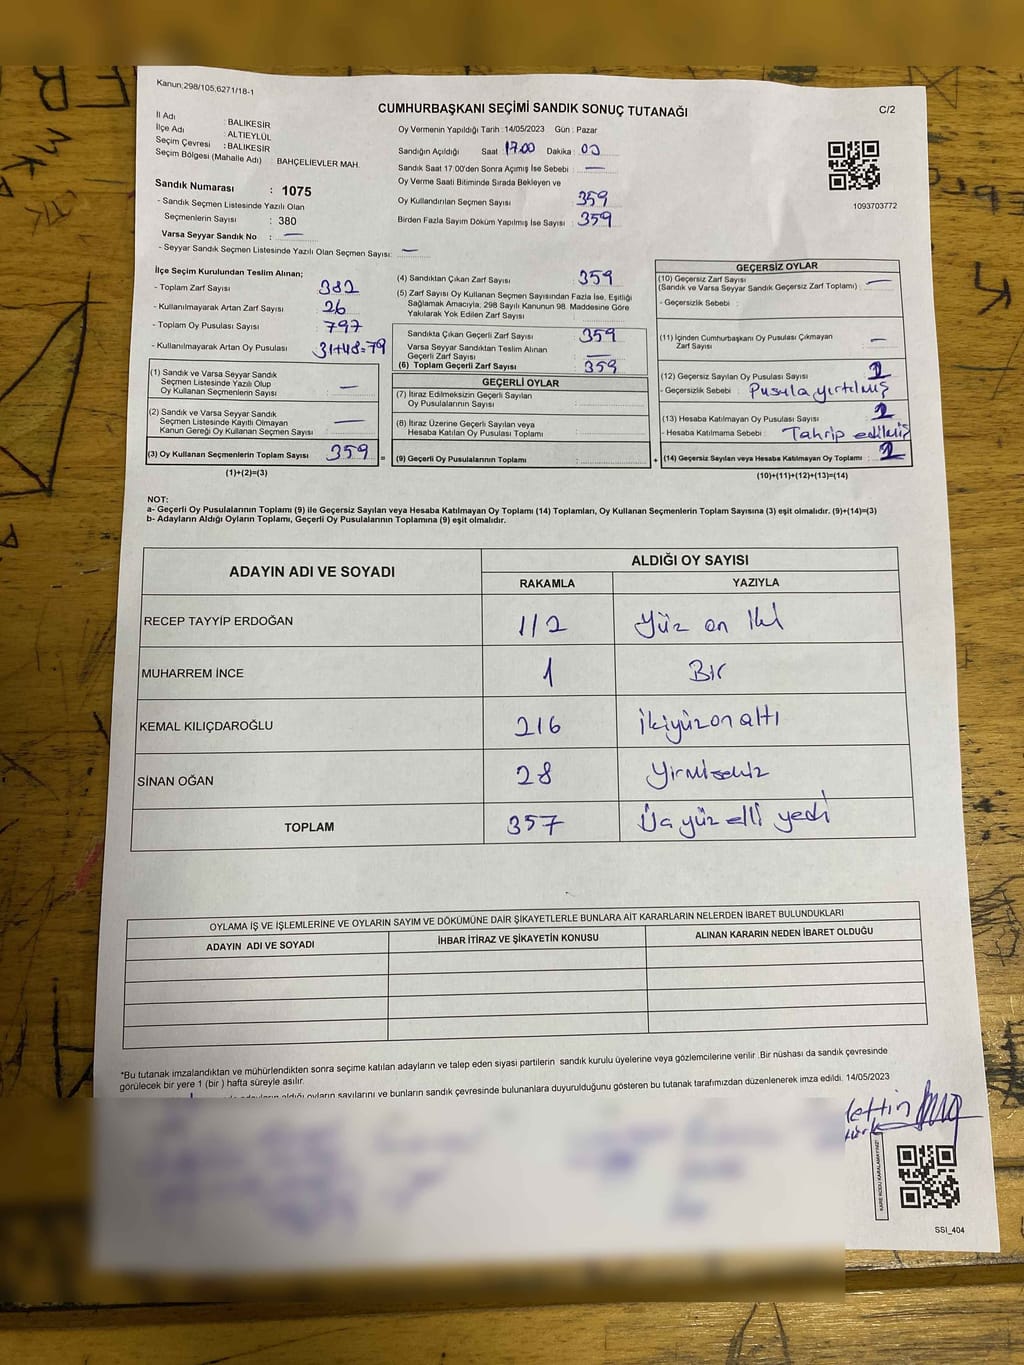 Kanun;298/105,6271/18-1
CUMHURBAŞKANI SEÇİMİ SANDIK SONUÇ TUTANAĞI
C/2
İl Adı : BALIKESİR
İlçe Adı : ALTIEYLÜL
Seçim Çevresi : BALIKESİR
Seçim Bölgesi (Mahalle Adı) : BAHÇELİEVLER MAH.
Sandık Numarası : 1075
- Sandık Seçmen Listesinde Yazılı Olan
Seçmenlerin Sayısı : 380
Varsa Seyyar Sandık No : —
- Seyyar Sandık Seçmen Listesinde Yazılı Olan Seçmen Sayısı: —
Oy Vermenin Yapıldığı Tarih : 14/05/2023 Gün : Pazar
Sandığın Açıldığı Saat : 17.00 Dakika : 00
Sandık Saat 17.00'den Sonra Açımış İse Sebebi : —
Oy Verme Saati Bitiminde Sırada Bekleyen ve
Oy Kullandırılan Seçmen Sayısı : 359
Birden Fazla Sayım Döküm Yapılmış İse Sayısı : 359
1093703772
İlçe Seçim Kurulundan Teslim Alınan;
- Toplam Zarf Sayısı : 382
- Kullanılmayarak Artan Zarf Sayısı : 26
- Toplam Oy Pusulası Sayısı : 797
- Kullanılmayarak Artan Oy Pusulası : 31+48=79
(1) Sandık ve Varsa Seyyar Sandık
Seçmen Listesinde Yazılı Olup
Oy Kullanan Seçmenlerin Sayısı : —
(2) Sandık ve Varsa Seyyar Sandık
Seçmen Listesinde Kayıtlı Olmayan
Kanun Gereği Oy Kullanan Seçmen Sayısı : —
(3) Oy Kullanan Seçmenlerin Toplam Sayısı : 359 =
(1)+(2)=(3)
(4) Sandıktan Çıkan Zarf Sayısı : 359
(5) Zarf Sayısı Oy Kullanan Seçmen Sayısından Fazla İse, Eşitliği
Sağlamak Amacıyla, 298 Sayılı Kanunun 98. Maddesine Göre
Yakılarak Yok Edilen Zarf Sayısı :
Sandıkta Çıkan Geçerli Zarf Sayısı : 359
Varsa Seyyar Sandıktan Teslim Alınan
Geçerli Zarf Sayısı : —
(6) Toplam Geçerli Zarf Sayısı : 359
GEÇERLİ OYLAR
(7) İtiraz Edilmeksizin Geçerli Sayılan
Oy Pusulalarının Sayısı :
(8) İtiraz Üzerine Geçerli Sayılan veya
Hesaba Katılan Oy Pusulası Toplamı :
(9) Geçerli Oy Pusulalarının Toplamı : +
GEÇERSİZ OYLAR
(10) Geçersiz Zarf Sayısı
(Sandık ve Varsa Seyyar Sandık Geçersiz Zarf Toplamı) : —
- Geçersizlik Sebebi :
(11) İçinden Cumhurbaşkanı Oy Pusulası Çıkmayan
Zarf Sayısı : —
(12) Geçersiz Sayılan Oy Pusulası Sayısı :
- Geçersizlik Sebebi : Pusula yırtılmış
(13) Hesaba Katılmayan Oy Pusulası Sayısı :
- Hesaba Katılmama Sebebi : Tahrip edilmiş
(14) Geçersiz Sayılan veya Hesaba Katılmayan Oy Toplamı :
(10)+(11)+(12)+(13)=(14)
NOT:
a- Geçerli Oy Pusulalarının Toplamı (9) ile Geçersiz Sayılan veya Hesaba Katılmayan Oy Toplamı (14) Toplamları, Oy Kullanan Seçmenlerin Toplam Sayısına (3) eşit olmalıdır. (9)+(14)=(3)
b- Adayların Aldığı Oyların Toplamı, Geçerli Oy Pusulalarının Toplamına (9) eşit olmalıdır.
ADAYIN ADI VE SOYADI
ALDIĞI OY SAYISI
RAKAMLA YAZIYLA
RECEP TAYYİP ERDOĞAN 112 Yüz on iki
MUHARREM İNCE 1 Bir
KEMAL KILIÇDAROĞLU 216 ikiyüzonaltı
SİNAN OĞAN 28 Yirmisekiz
TOPLAM 357 Üç yüz elli yedi
OYLAMA İŞ VE İŞLEMLERİNE VE OYLARIN SAYIM VE DÖKÜMÜNE DAİR ŞİKAYETLERLE BUNLARA AİT KARARLARIN NELERDEN İBARET BULUNDUKLARI
ADAYIN ADI VE SOYADI İHBAR İTİRAZ VE ŞİKAYETİN KONUSU ALINAN KARARIN NEDEN İBARET OLDUĞU
*Bu tutanak imzalandıktan ve mühürlendikten sonra seçime katılan adayların ve talep eden siyasi partilerin sandık kurulu üyelerine veya gözlemcilerine verilir .Bir nüshası da sandık çevresinde
görülecek bir yere 1 (bir ) hafta süreyle asılır.
aldığı oyların sayılarını ve bunların sandık çevresinde bulunanlara duyurulduğunu gösteren bu tutanak tarafımızdan düzenlenerek imza edildi. 14/05/2023
KARE KODU KARALAMAYINIZ!
SSI_404